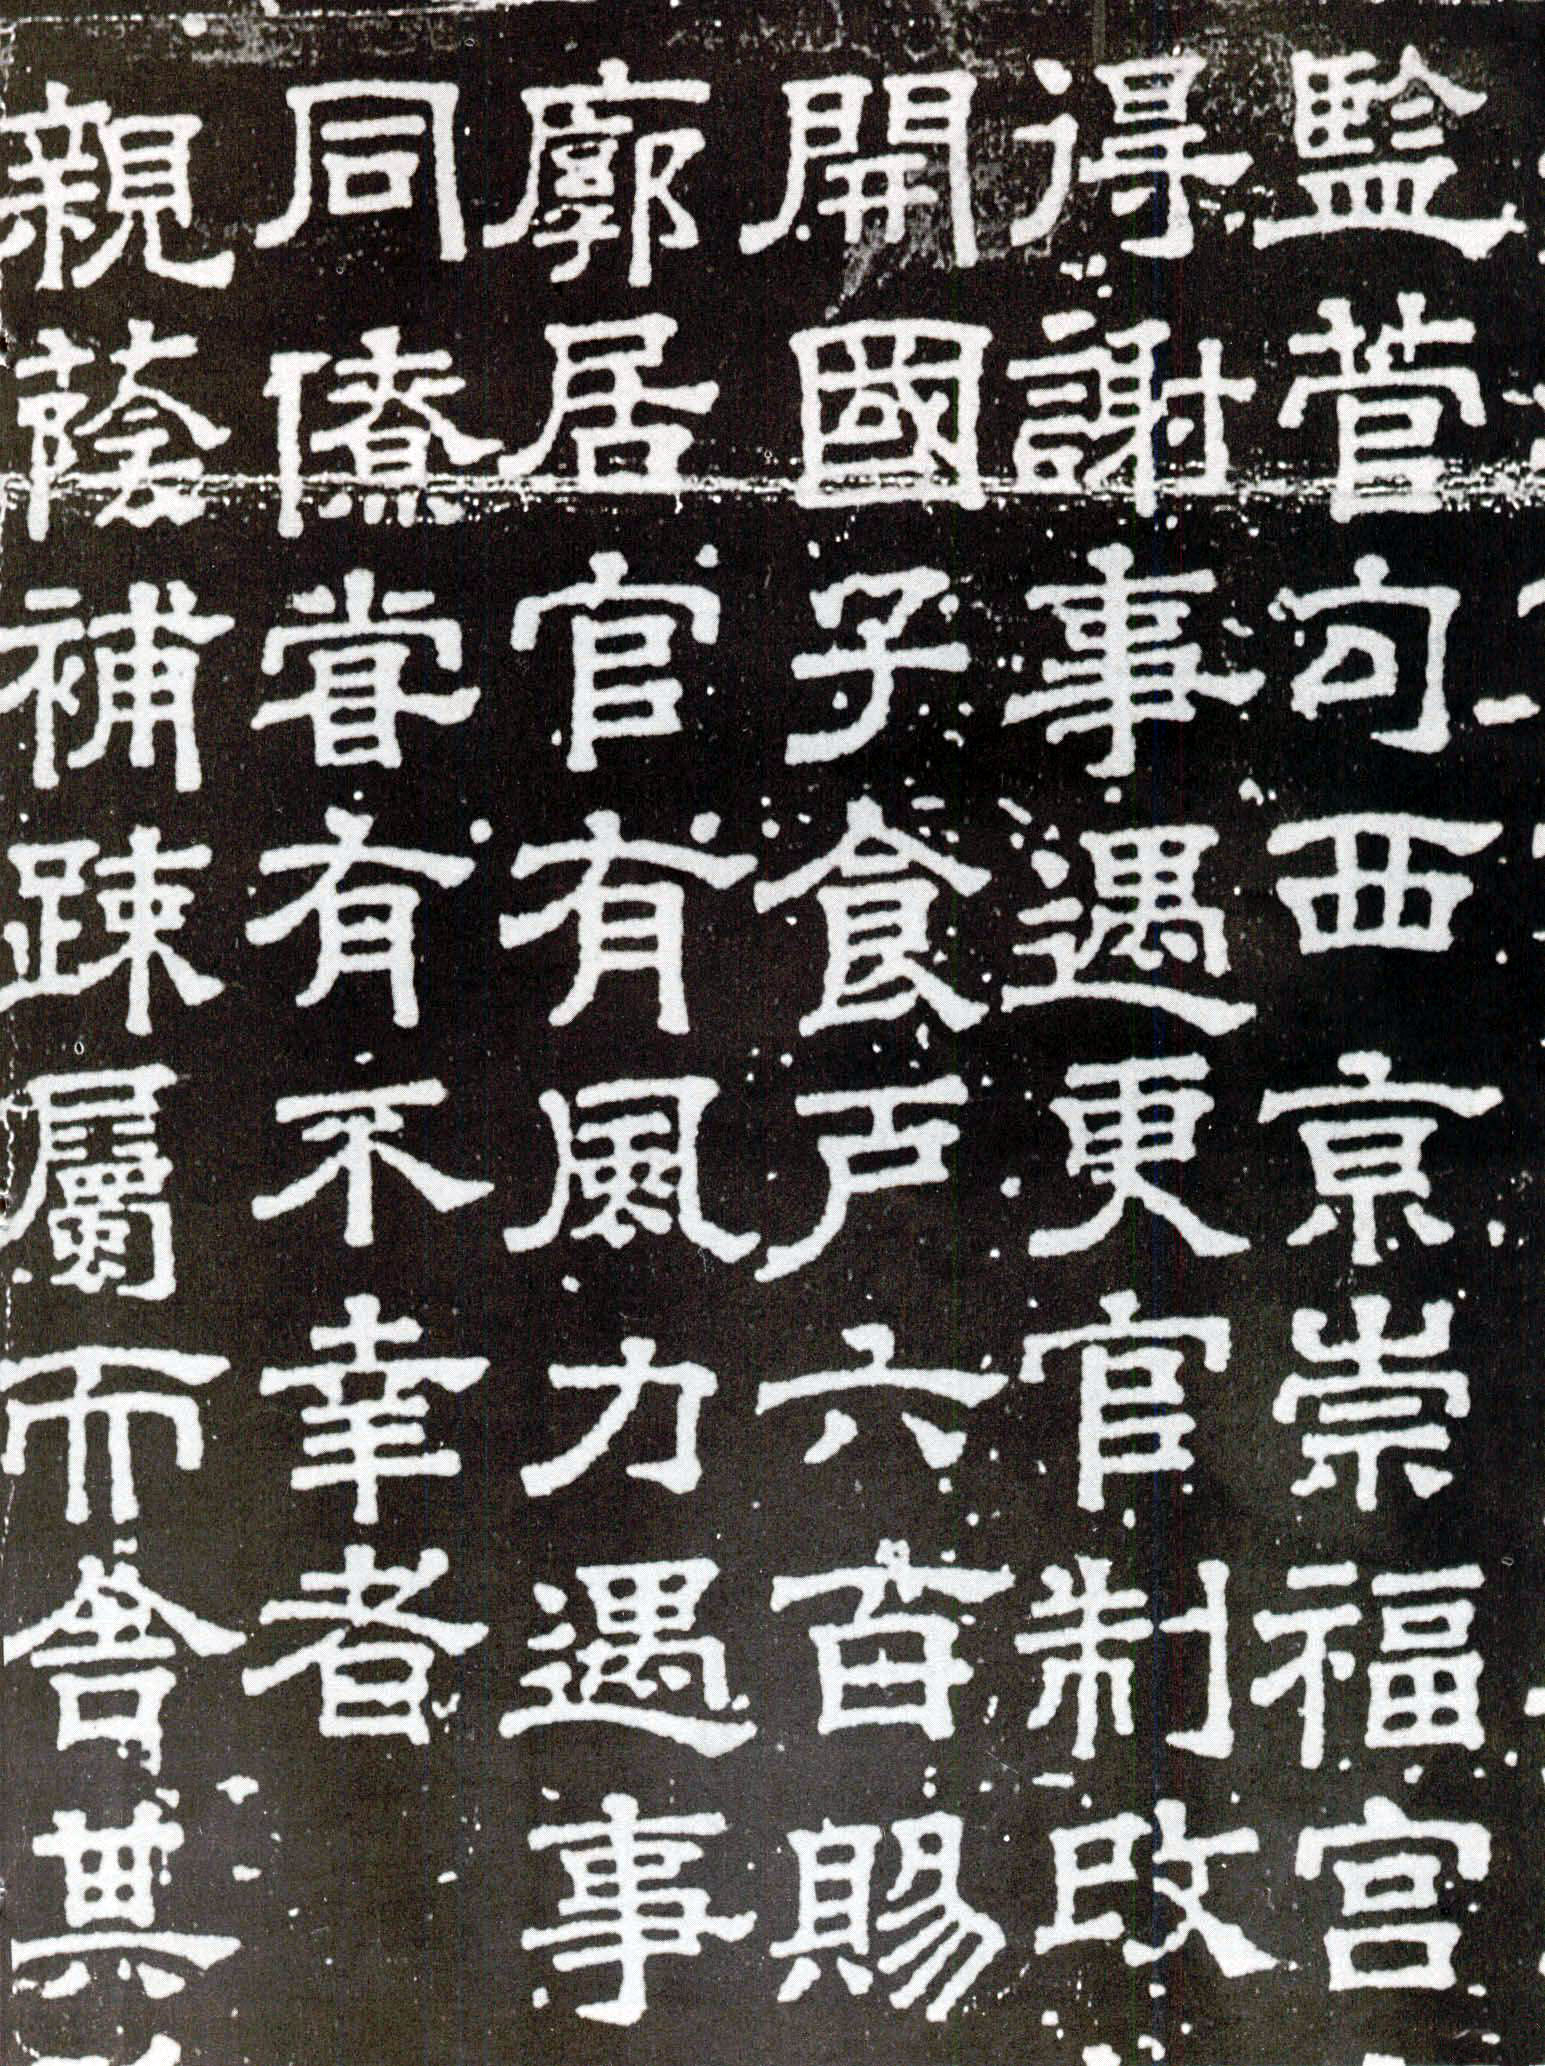 監管句西京崇福宮
得謝事遇更官制改
開國子食户六百賜
廓居官有風力遇事
同僚嘗有不幸者
親蔭補踈屬而舍其